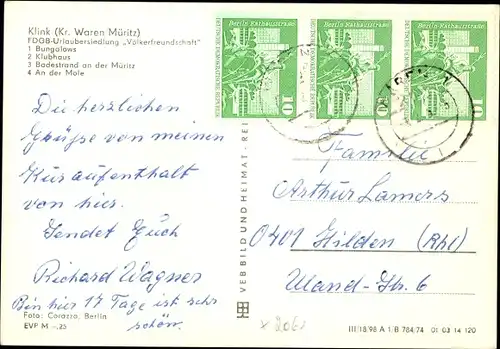 Klink (Kr. Waren Müritz)
FDGB-Urlaubersiedlung „Völkerfreundschaft"
1 Bungalows
2 Klubhaus
3 Badestrand an der Müritz
4 An der Mole
Die herzlichen
Grüße von meinen
Kuraufenthalt
von hier.
Sendet Euch
Richard Wagner
Bin hier 17 Tage ist sehr
schön.
Foto: Corazza, Berlin
EVP M –,25
VEB BILD UND HEIMAT · REI
Berlin, Rathausstraße
DEUTSCHE DEMOKRATISCHE REPUBLIK
10
Berlin, Rathausstraße
DEUTSCHE DEMOKRATISCHE REPUBLIK
10
Berlin, Rathausstraße
10
Familie
Arthur Lamers
0401 Hilden (Rhl)
Wand-Str. 6
III/18/98 A 1/B 784/74 01 03 14 120